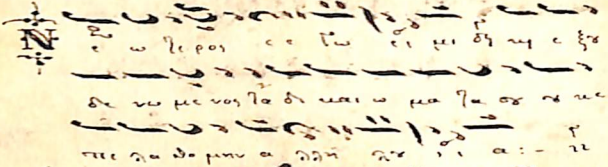 Ν ε ω τερος ε ε γω ει μι κι ε ξου
δε νω με νος τα δι και ω μα τα σου ου κε
πε λα θο μην α λλη λου ι ι α :-